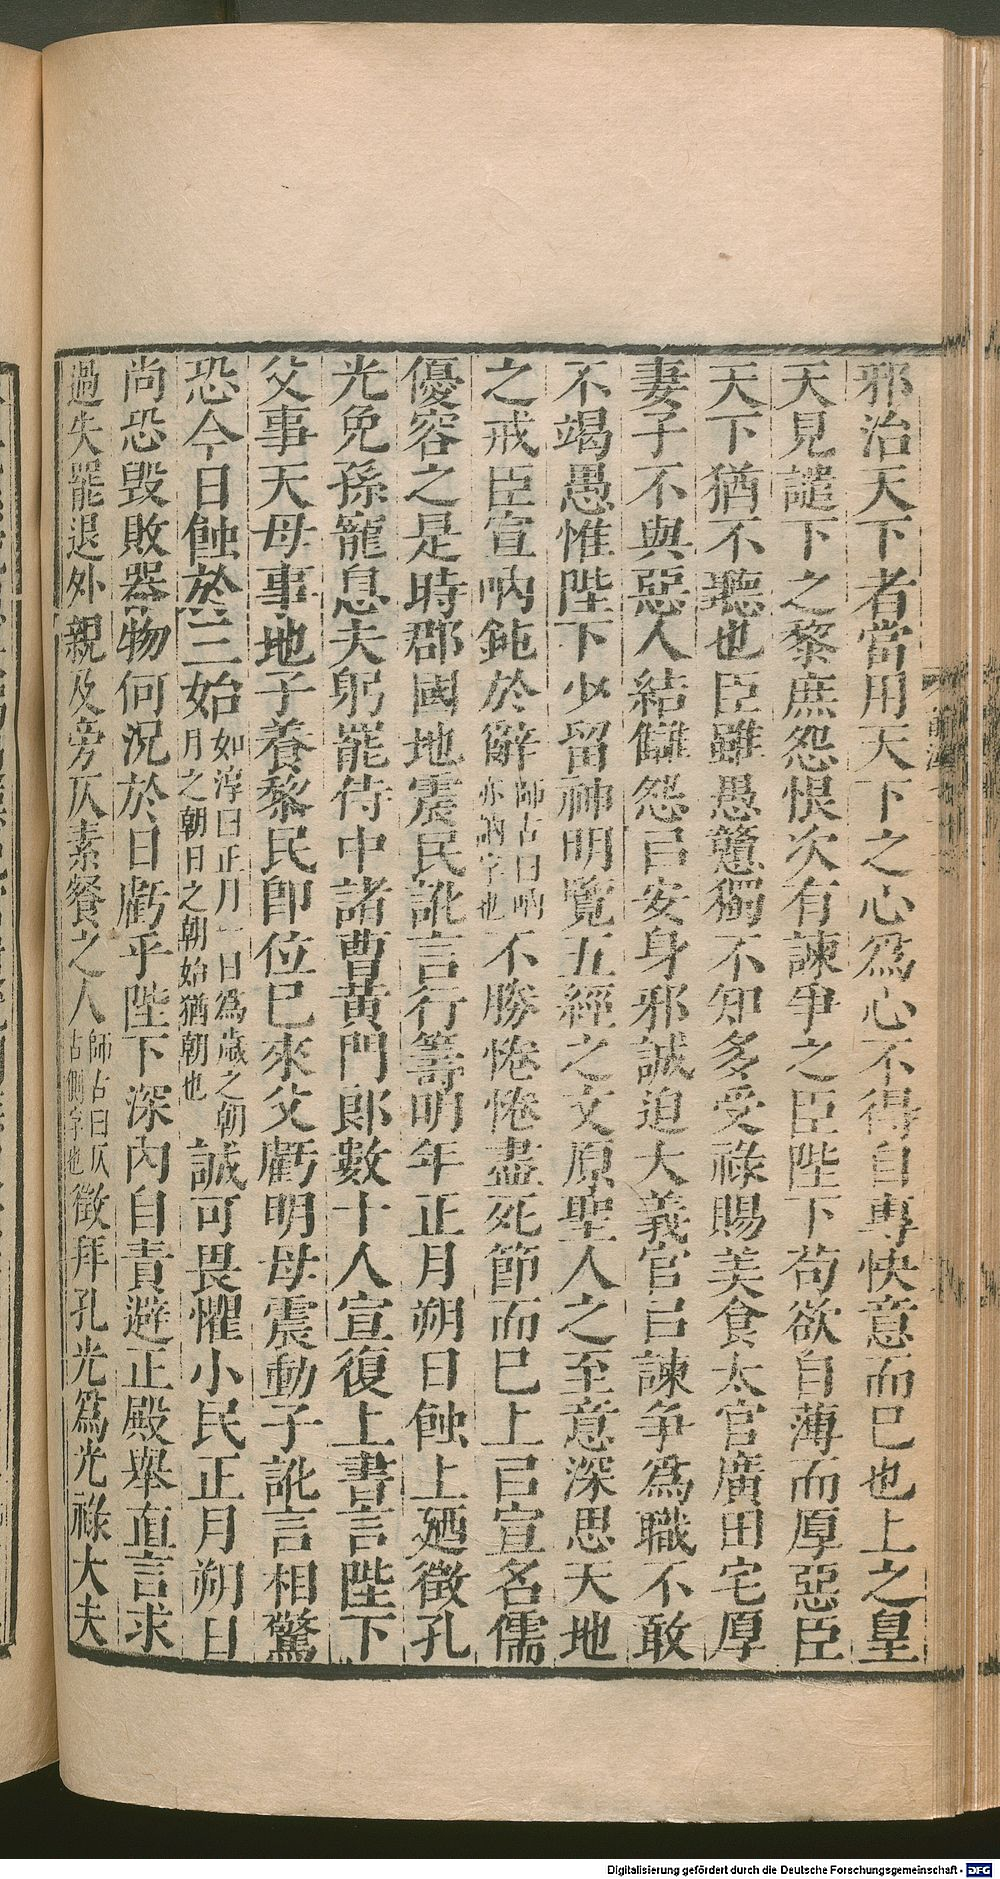 邪治天下者當用天下之心爲心不得自專快意而巳也上之皇
天見譴下之黎庶怨恨次有諫爭之臣陛下苟欲自薄而厚惡臣
天下猶不聽也臣雖愚戇獨不知多受祿賜美食太官廣田宅厚
妻子不與惡人結讎怨㠯安身邪誠迫大義官㠯諫爭爲職不敢
不竭愚惟陛下少留神明覽五經之文原聖人之至意深思天地
之戒臣宣吶鈍於辭師古曰吶亦訥字也不勝惓惓盡死節而巳上㠯宣名儒
優容之是時郡國地震民訛言行籌明年正月朔日蝕上廼徵孔
光免孫寵息夫躬罷侍中諸曹黃門郎數十人宣復上書言陛下
父事天母事地子養黎民卽位巳來父虧明母震動子訛言相驚
恐今日蝕於三始如淳曰正月一日爲歲之朝月之朝日之朝始猶朝也誠可畏懼小民正月朔日
尚恐毀敗器物何況於日虧乎陛下深內自責避正殿舉直言求
過失罷退外親及旁仄素餐之人師古曰仄古側字也徵拜孔光爲光祿大夫
Digitalisierung gefördert durch die Deutsche Forschungsgemeinschaft - DFG